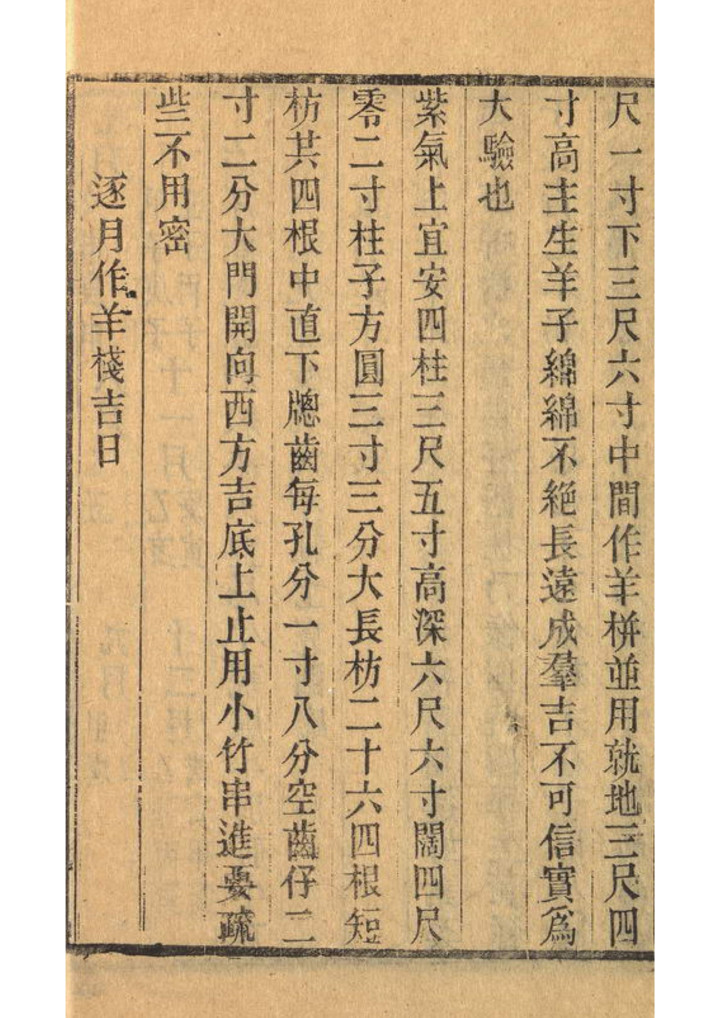 尺一寸下三尺六寸中間作羊栟並用就地三尺四
寸高主生羊子綿綿不絶長遠成羣吉不可信實爲
大驗也
紫氣上宜安四柱三尺五寸高深六尺六寸闊四尺
零二寸柱子方圓三寸三分大長枋二十六四根短
枋共四根中直下牕齒每孔分一寸八分空齒仔二
寸二分大門開向西方吉底上止用小竹串進要疏
些不用密
逐月作羊棧吉日